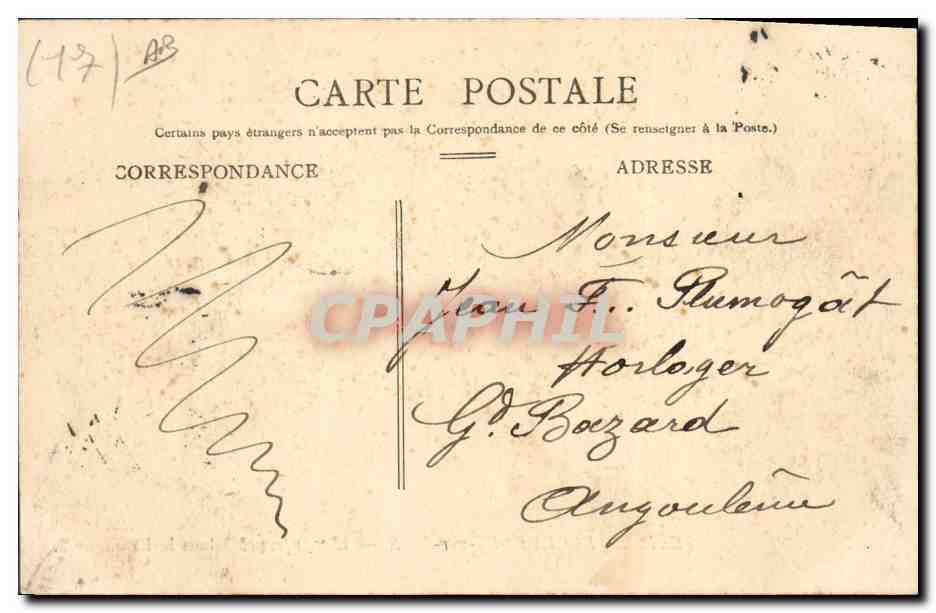 (17) AB
CARTE POSTALE
Certains pays étrangers n'acceptent pas la Correspondance de ce côté (Se renseigner à la Poste.)
CORRESPONDANCE
ADRESSE
Monsieur
Jean F... Plumogât
Horloger
Gd. Bazard
Angoulême
CPAPHIL